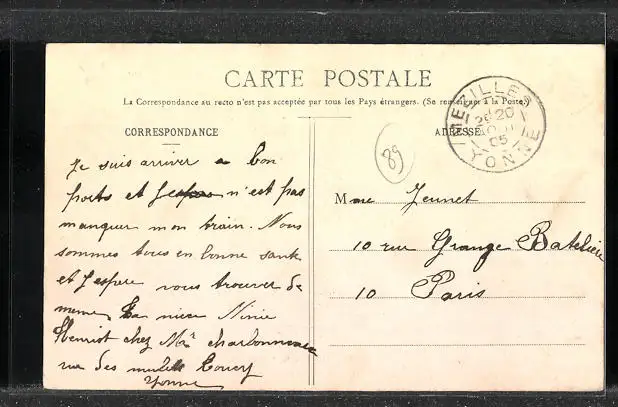 CARTE POSTALE
La Correspondance au recto n'est pas acceptée par tous les Pays étrangers. (Se renseigner à la Poste)
CORRESPONDANCE
ADRESSE
MEZILLES
YONNE
05
89
Je suis arriver a bon
ports et n'est pas
manquer mon train. Nous
sommes tous en bonne santé
et J'espere vous trouver de
meme La niece Ninie
Henriot chez Mr charbonneau
rue des Toucy
Yonne
Mme Jeunet
10 rue Grange Batelière
10 Paris